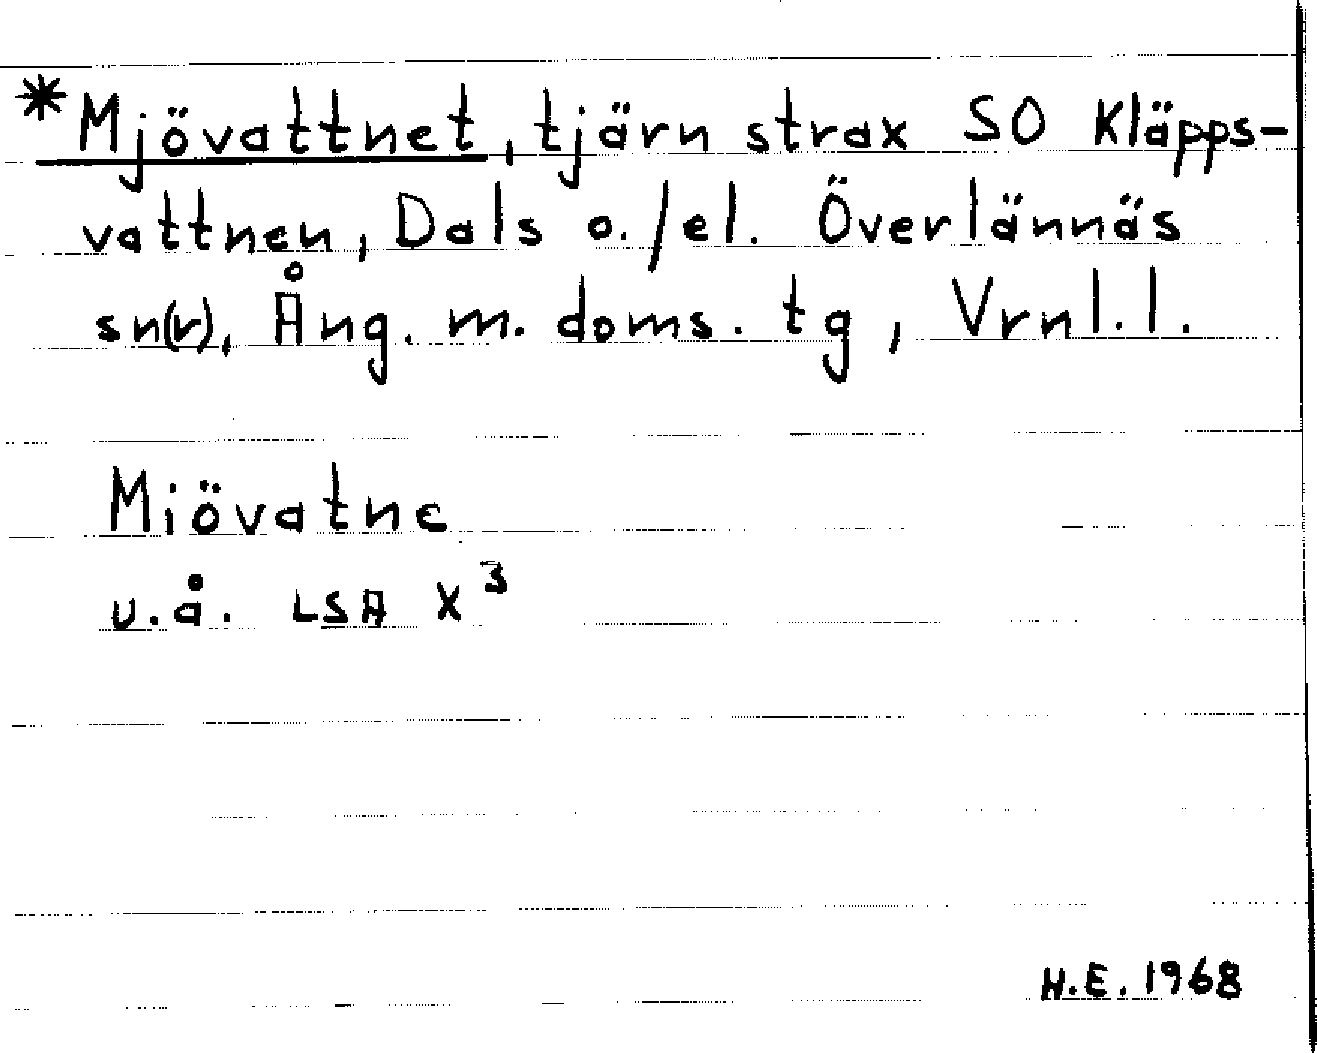 *Mjövattnet, tjärn strax SO Kläpps-
vattnen, Dals o./el. Överlännäs
sn(r), Ång. m. doms. tg, Vrnl.l.
Miövatne
u.å. LSA X³
H.E. 1968